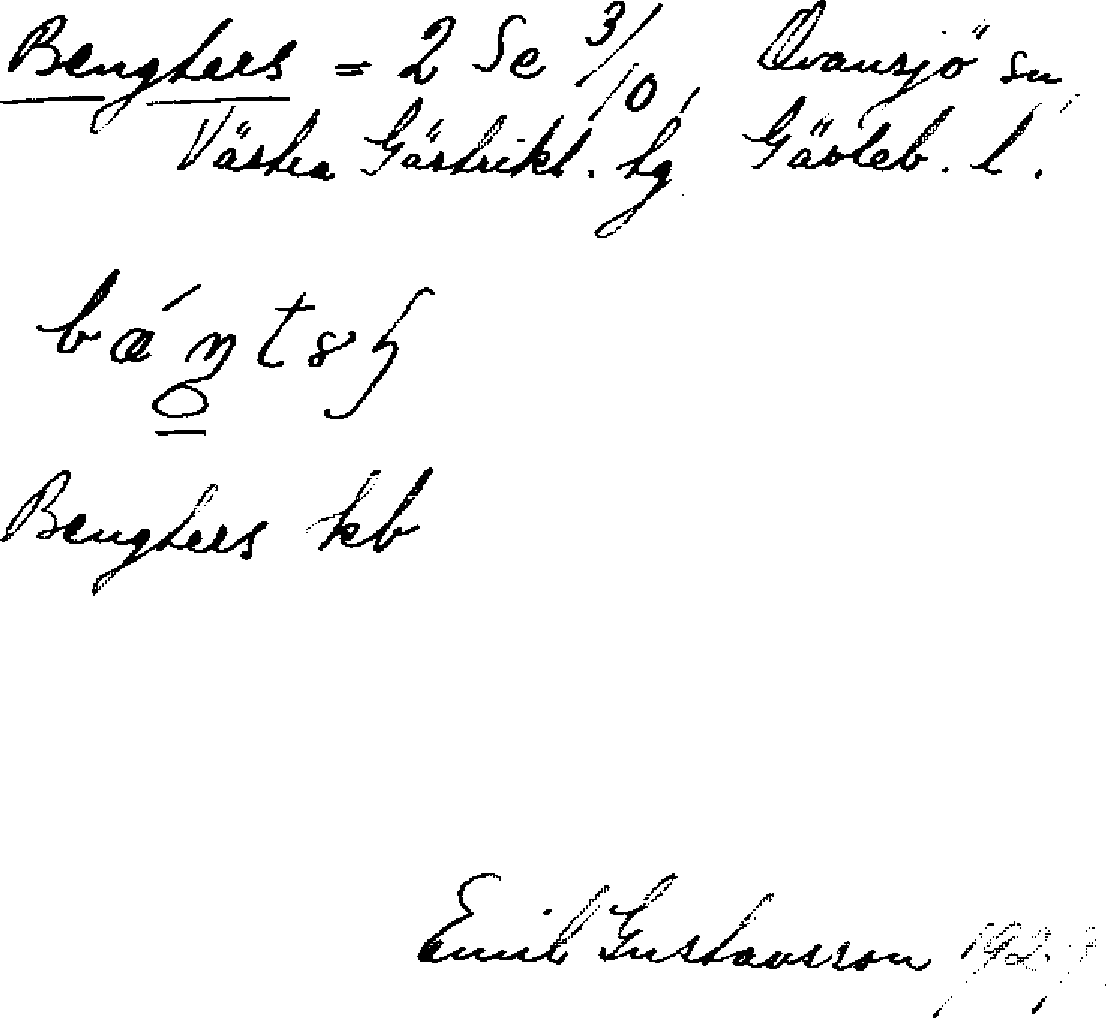 Bengters = 2 Se 3/10, Ovansjö sn,
Västra Gästrikl. hg Gävleb. l.
Bengters kb
Emil Gustavsson